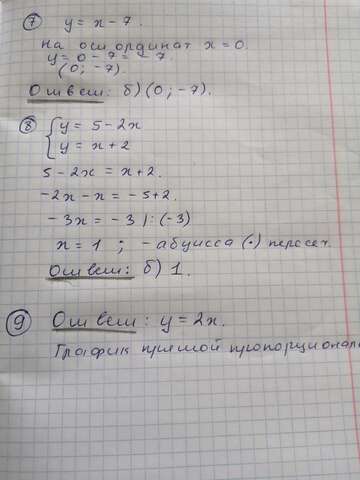 ⑦ y = x - 7.
на оси ординат x = 0.
y = 0 - 7 = - 7.
(0; -7).
Ответ: б) (0; -7).
⑧ { y = 5 - 2x
y = x + 2
5 - 2x = x + 2.
-2x - x = -5 + 2.
-3x = -3 | : (-3)
x = 1 ; - абцисса (·) пересеч.
Ответ: б) 1.
⑨ Ответ: y = 2x.
График прямой пропорционал